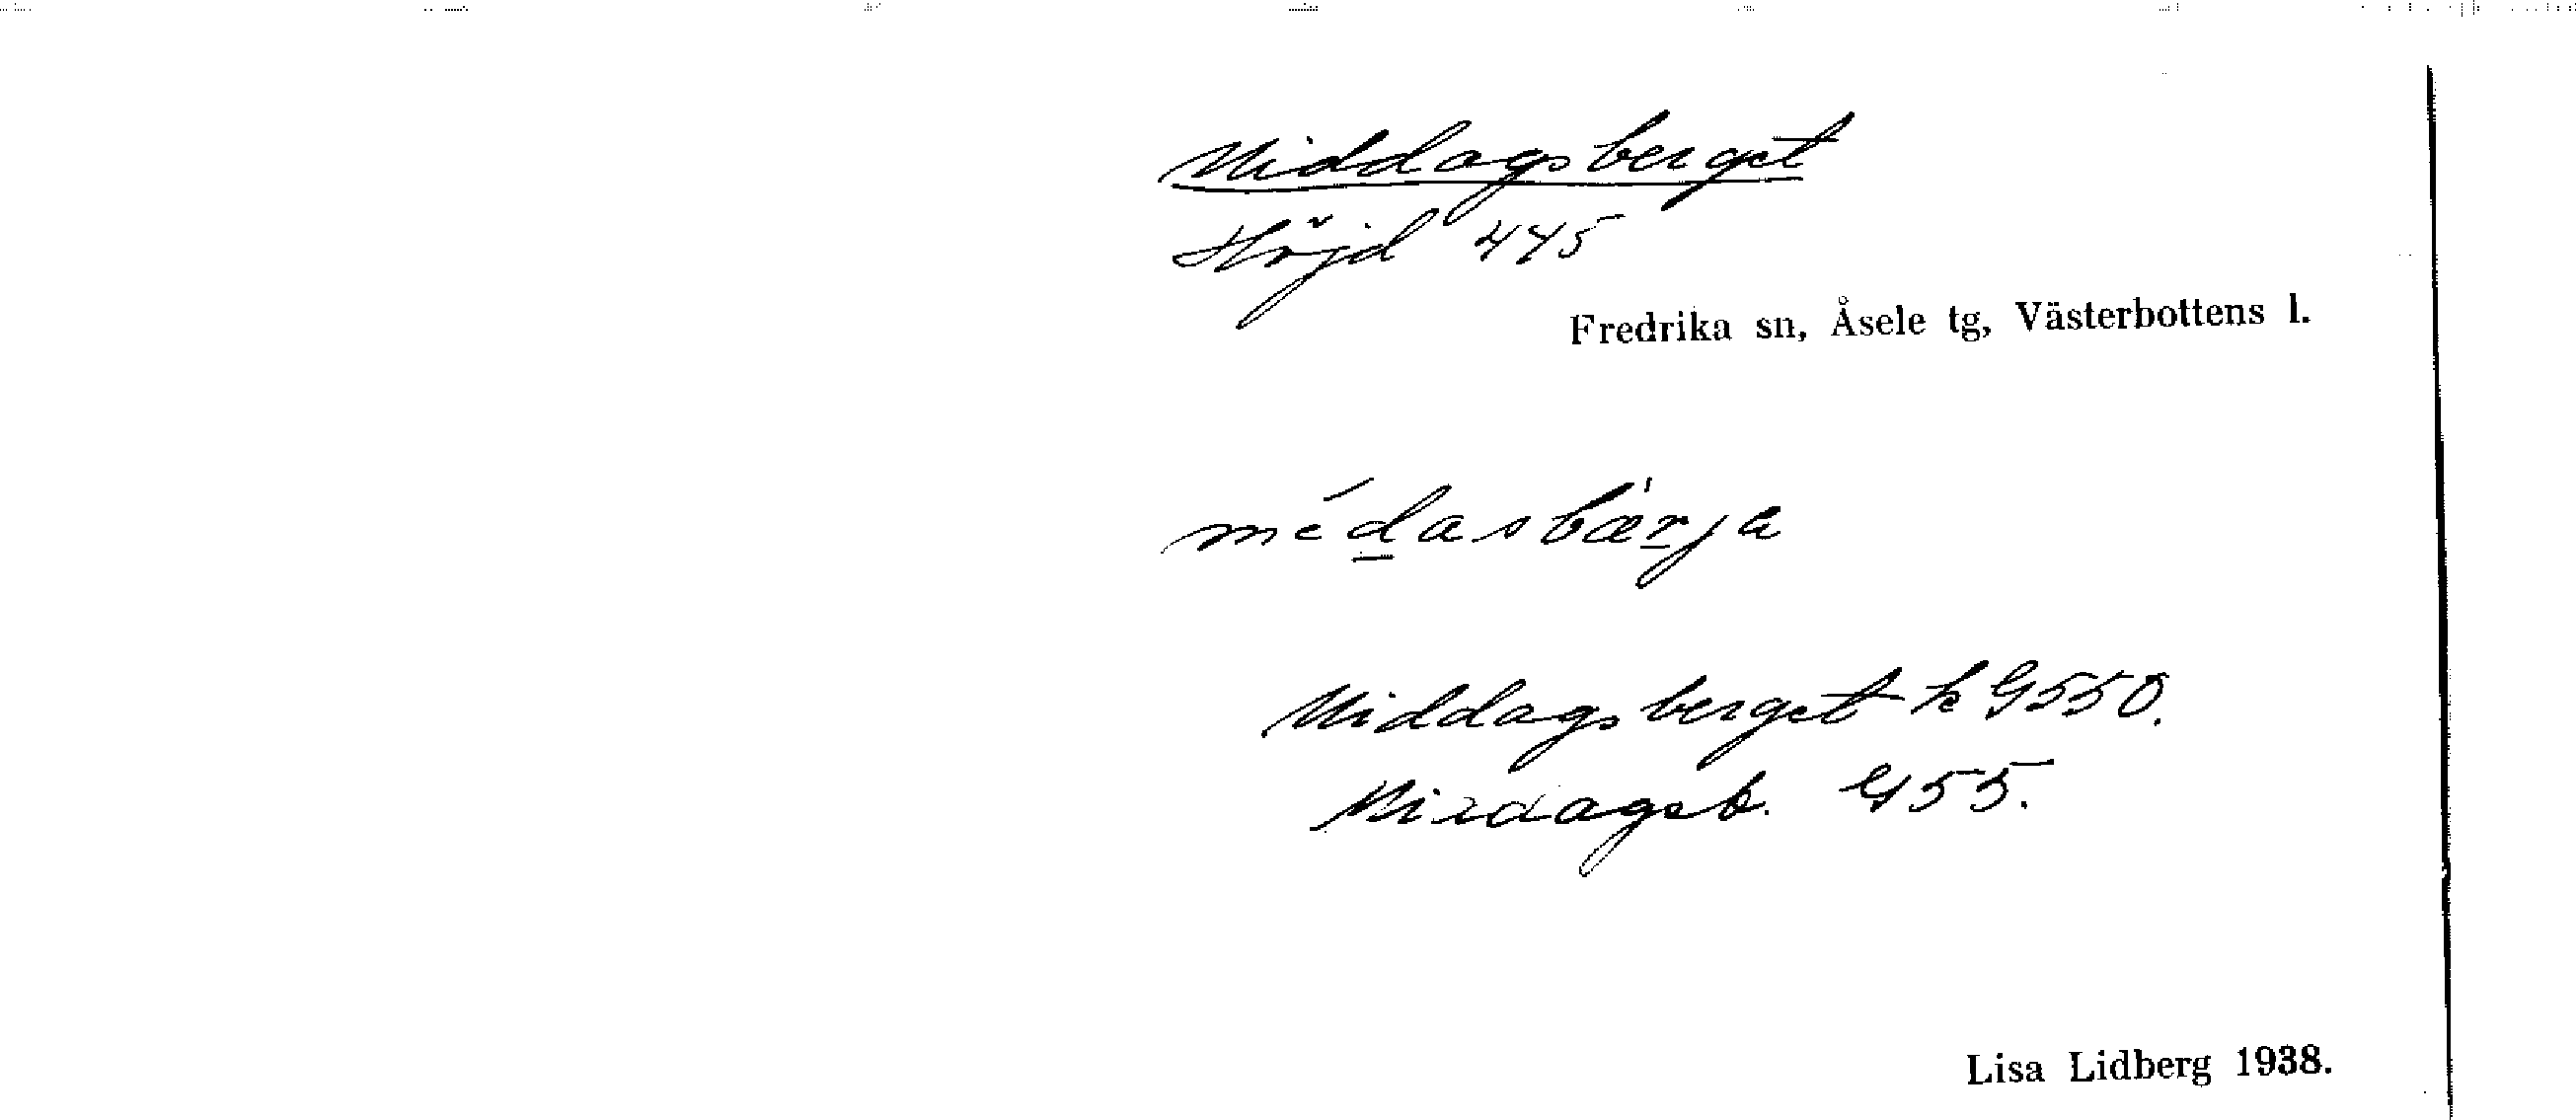 Middagsberget
Höjd 445
Fredrika sn, Åsele tg, Västerbottens l.
médasbærja
Middagsberget k G550.
Middagsb. G55.
Lisa Lidberg 1938.